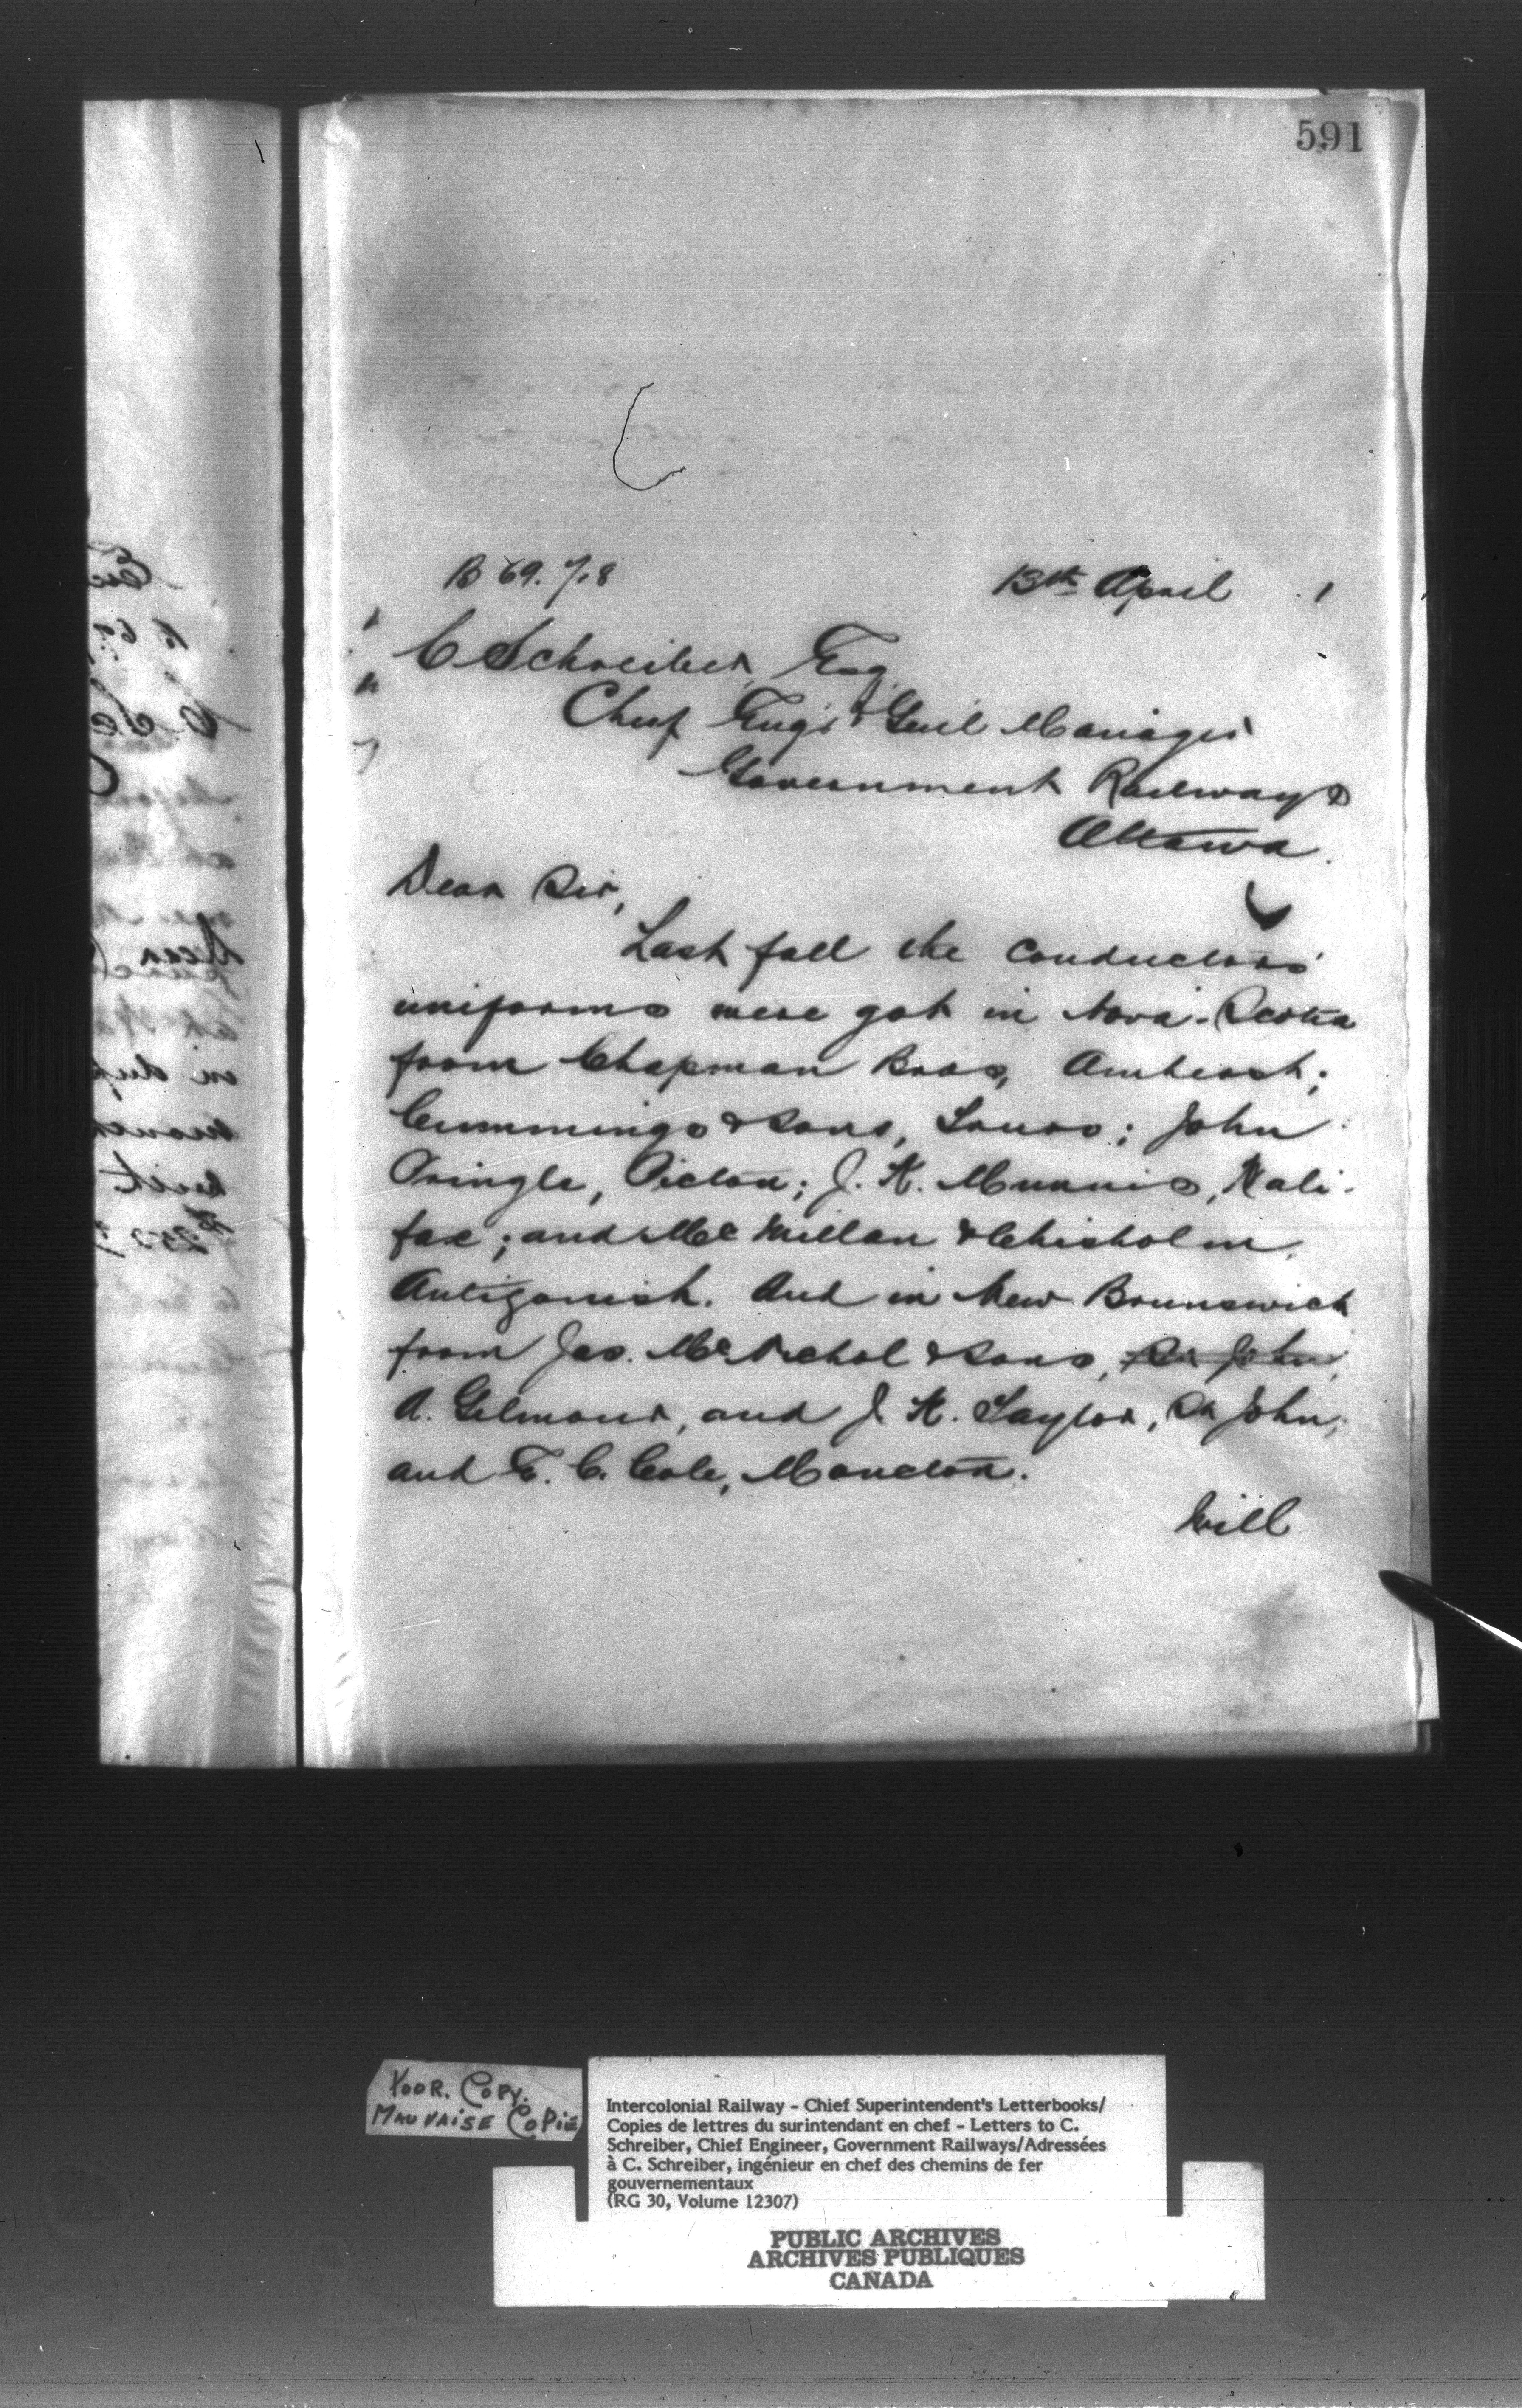 591
B 69. 7.8
13th April 1
C Schreiber, Esq.
Chief Engr & Genl Manager
Government Railways
Ottawa.
Dear Sir,
Last fall the conductors'
uniforms were got in Nova-Scotia
from Chapman Bros, Amherst;
Cummings & Sons, Truro; John
Pringle, Pictou; J. K. Munnis, Hali-
fax; and McMillan & Chisholm,
Antigonish. And in New Brunswick
from Jas. McNichol & Sons, St. John,
A. Gilmour, and J. K. Taylor, St John;
and E. C. Cole, Moncton.
Will
POOR. COPY.
MAUVAISE COPIE
Intercolonial Railway - Chief Superintendent's Letterbooks/
Copies de lettres du surintendant en chef - Letters to C.
Schreiber, Chief Engineer, Government Railways/Adressées
à C. Schreiber, ingénieur en chef des chemins de fer
gouvernementaux
(RG 30, Volume 12307)
PUBLIC ARCHIVES
ARCHIVES PUBLIQUES
CANADA